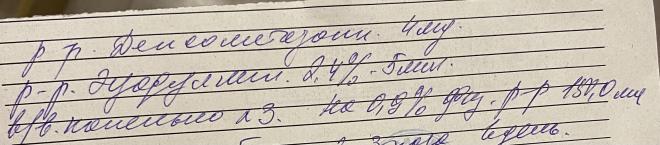 р-р. Дексометазон. 4мг.
р-р. Эуфуллин. 2,4% - 5мл.
в/в. капельно №3. на 0,9% физ. р-р 150,0 мл
в день.